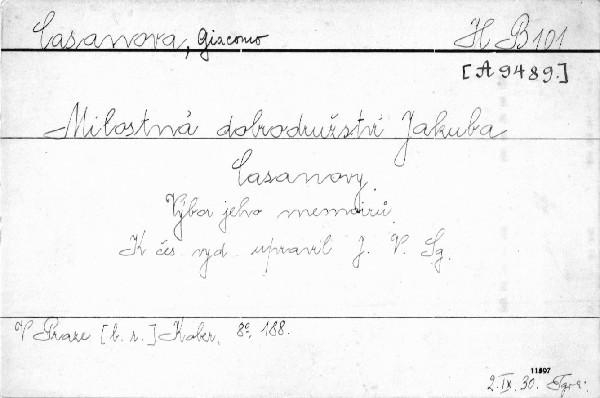 Casanova, Giacomo
H B 101
[A 9489.]
Milostná dobrodružství Jakuba
Casanovy.
Výbor jeho memoirů.
K čes. vyd. upravil J. V. Sg.
V Praze [b. r.] Kober, 8°, 188.
11897
2. IX. 30.